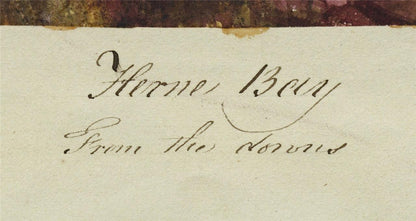 Herne Bay
From the downs